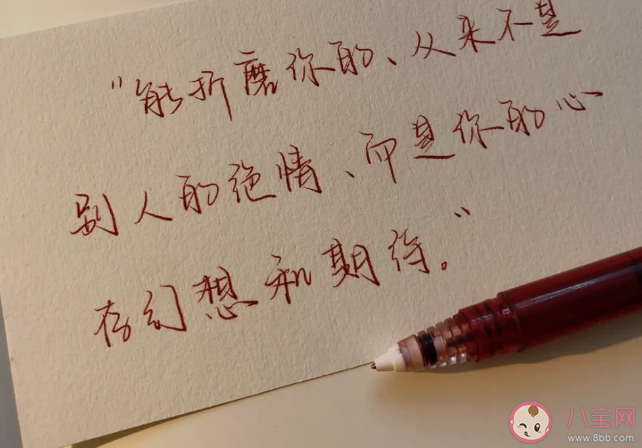 “能折磨你的、从来不是
别人的绝情、而是你的心
存幻想和期待。”
八宝网
www.8bb.com